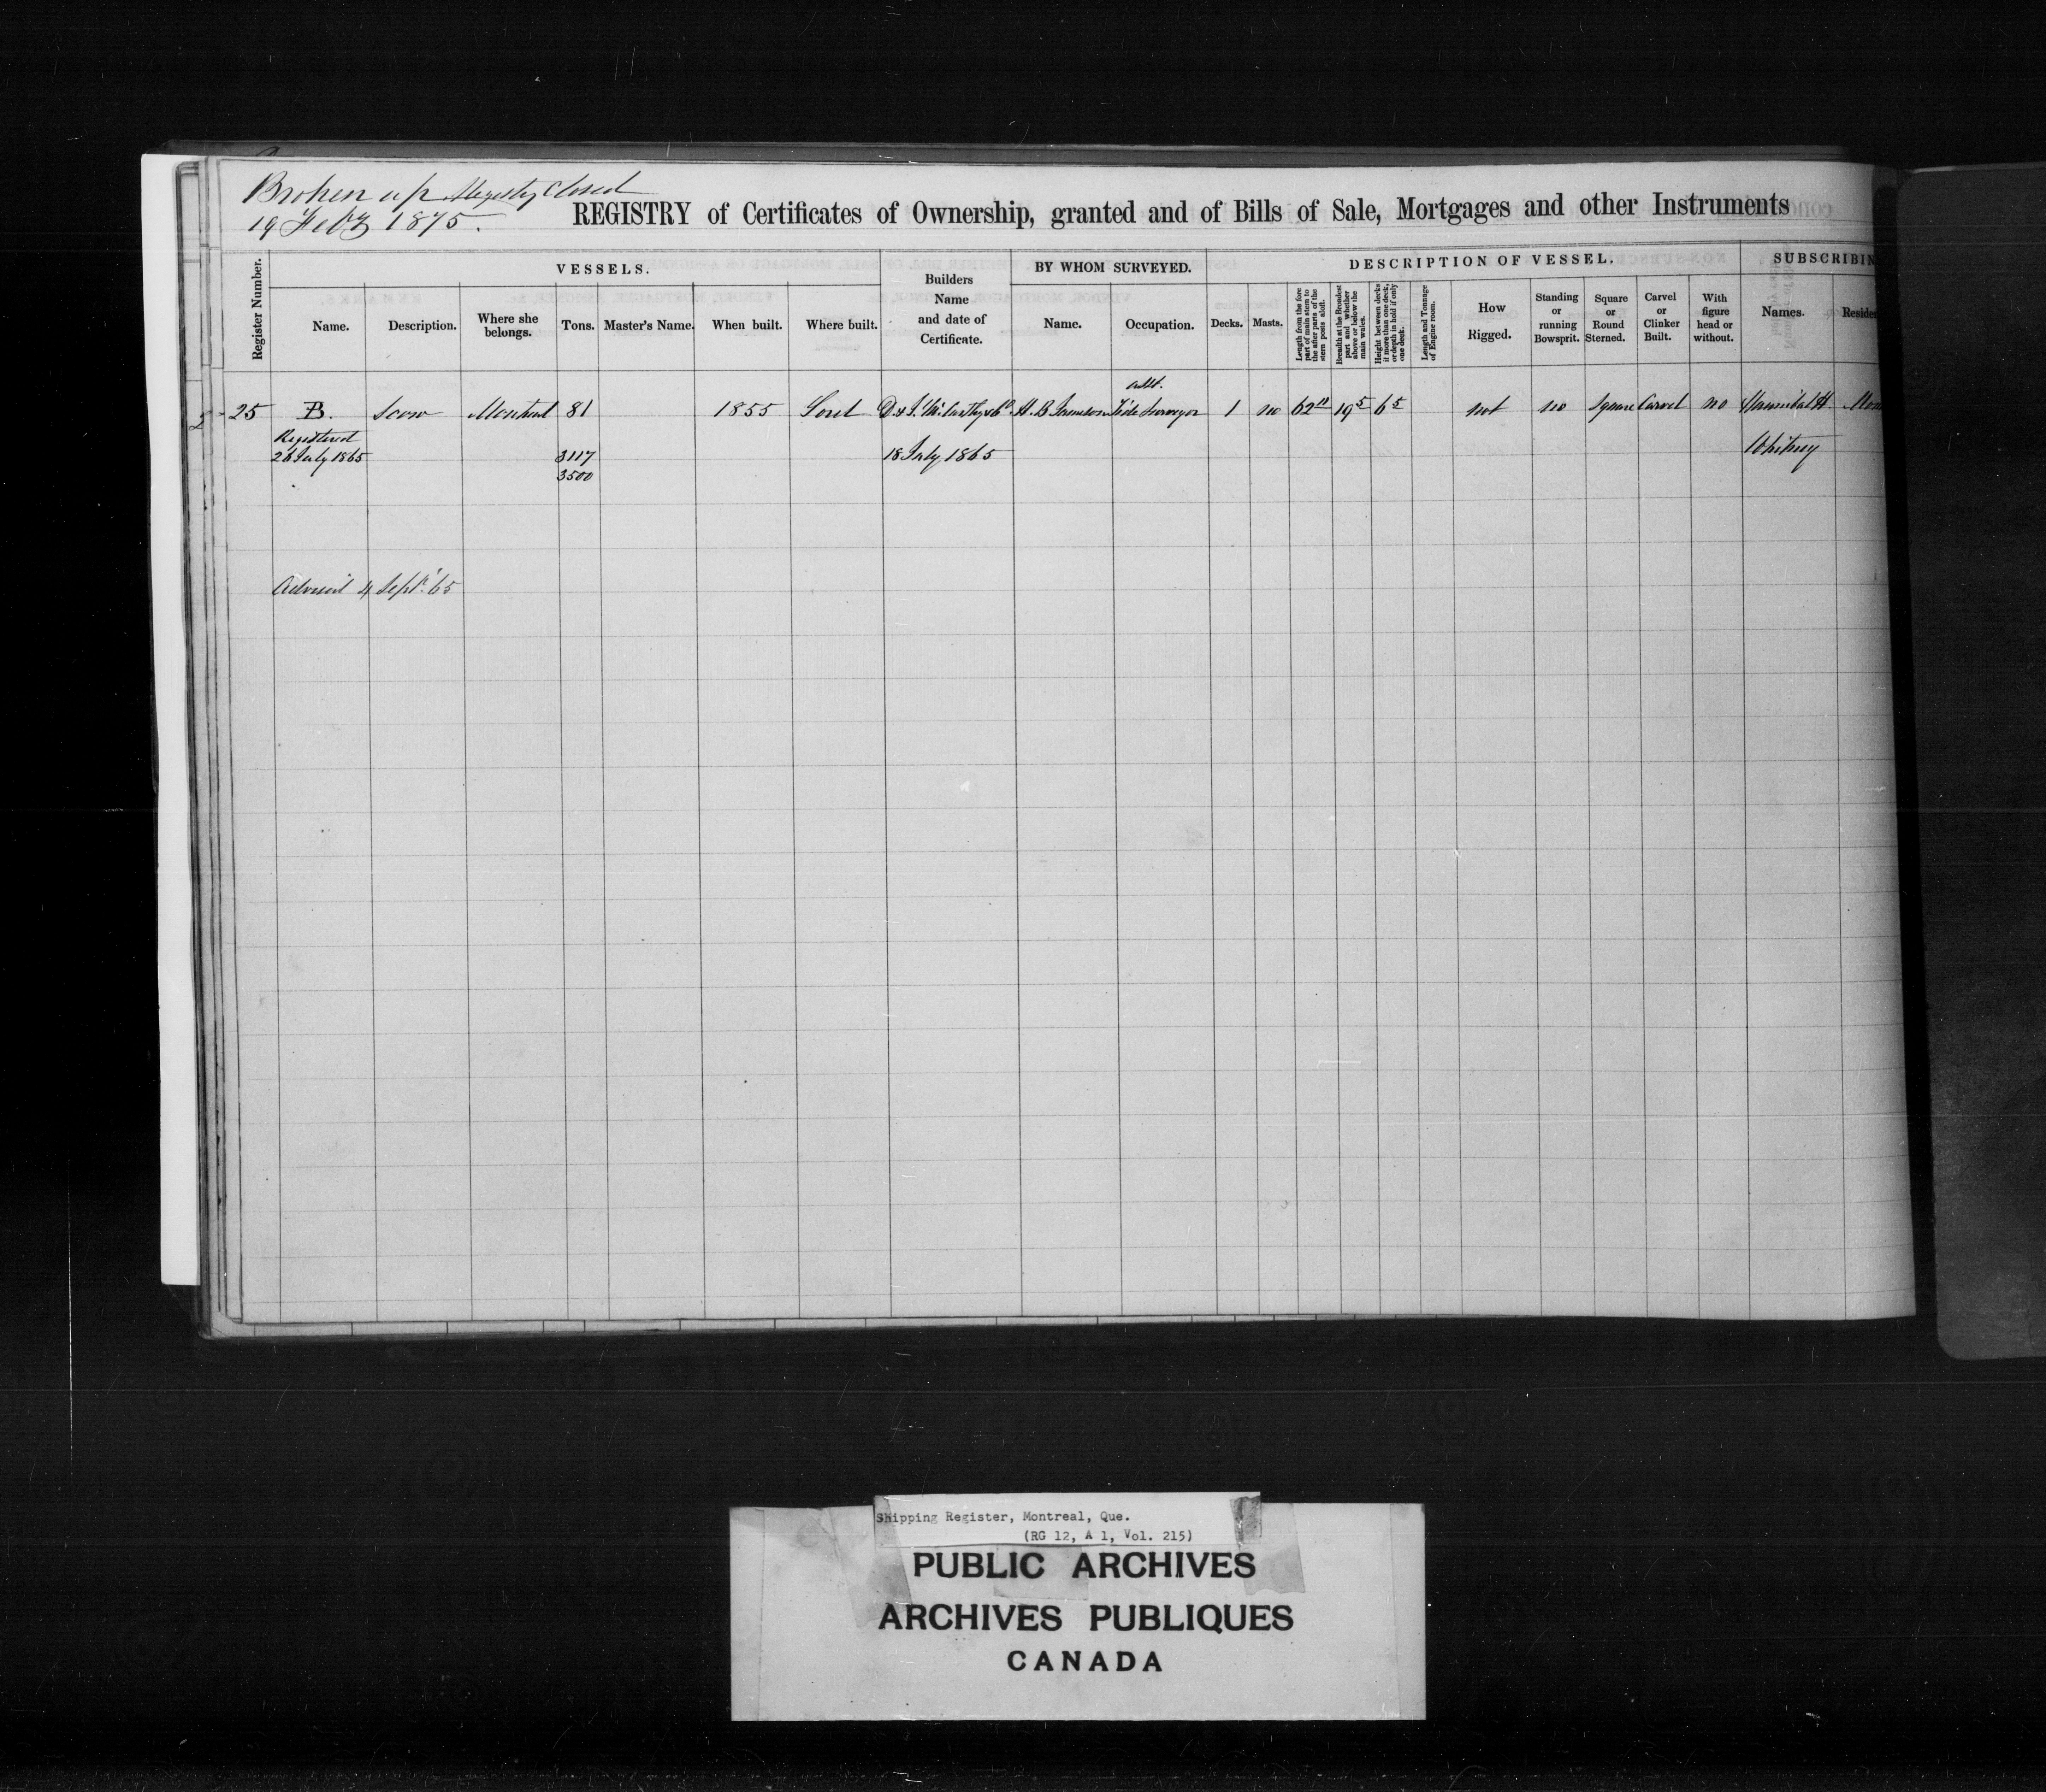 Broken up Registry Closed
19 Feby 1875.
REGISTRY of Certificates of Ownership, granted and of Bills of Sale, Mortgages and other Instruments
Register Number.
VESSELS.
Name.
Description.
Where she belongs.
Tons.
Master's Name.
When built.
Where built.
Builders Name and date of Certificate.
BY WHOM SURVEYED.
Name.
Occupation.
DESCRIPTION OF VESSEL.
Decks.
Masts.
Length from the fore part of main stem to the after parts of the stern posts aloft.
Breadth at the Broadest part and whether above or below the main wales.
Height between decks if more than one deck, or depth in hold if only one deck.
Length and Tonnage of Engine room.
How Rigged.
Standing or running Bowsprit.
Square or Round Sterned.
Carvel or Clinker Built.
With figure head or without.
SUBSCRIBIN
Names.
Reside
25 B. Scow Montreal 81 1855 Sorel D & J. McCarthy & Co. H. B. Asst. Tide Surveyor 1 no 62 11 19 5 6 5 not no Square Carvel no Hannibal H. Mon
Registered
26 July 1865 3117 18 July 1865 Whitney
3500
4 Sept. '65
Shipping Register, Montreal, Que.
(RG 12, A 1, Vol. 215)
PUBLIC ARCHIVES
ARCHIVES PUBLIQUES
CANADA